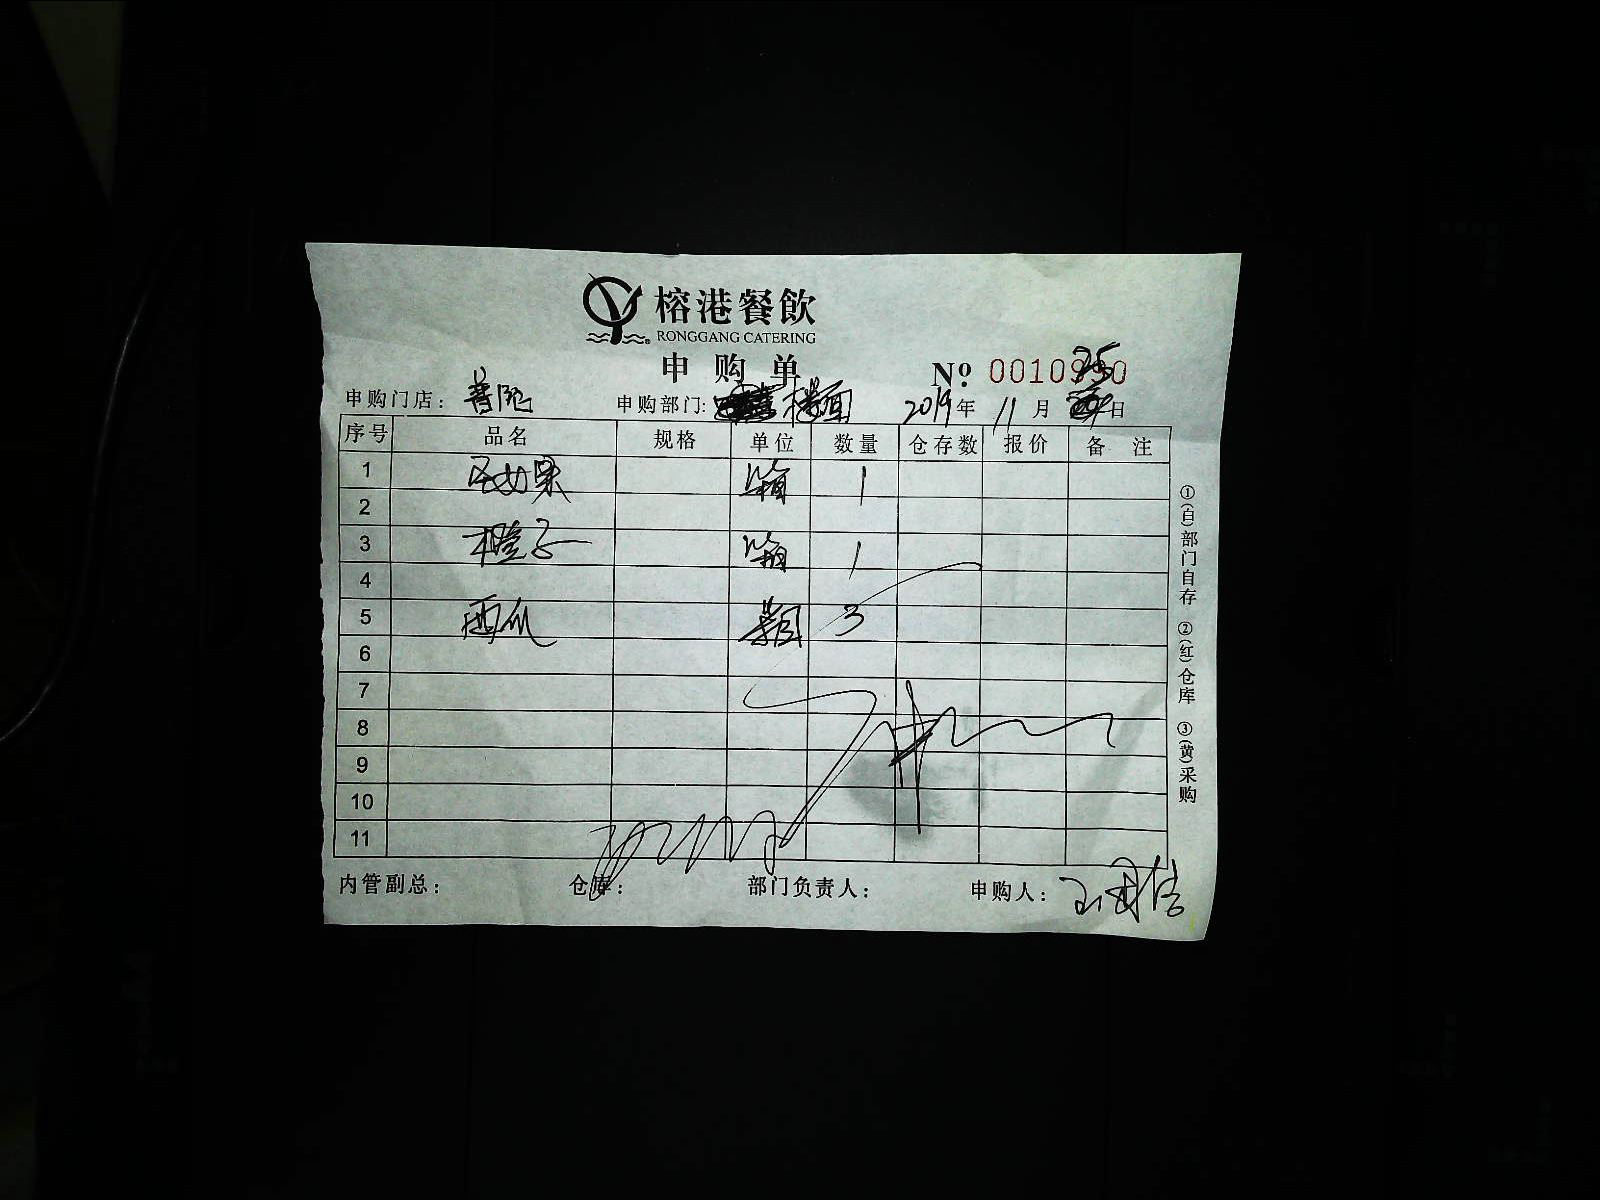 榕港餐飲
RONGGANG CATERING
申购单
№ 0010930
25
申购门店：普陀 申购部门：楼面 2019年 11月 日
序号 品名 规格 单位 数量 仓存数 报价 备 注
1 圣女果 箱 1
2
3 橙子 箱 1
4
5 西瓜 颗 3
6
7
8
9
10
11
①(白)部门自存 ②(红)仓库 ③(黄)采购
内管副总： 仓库： 部门负责人： 申购人：